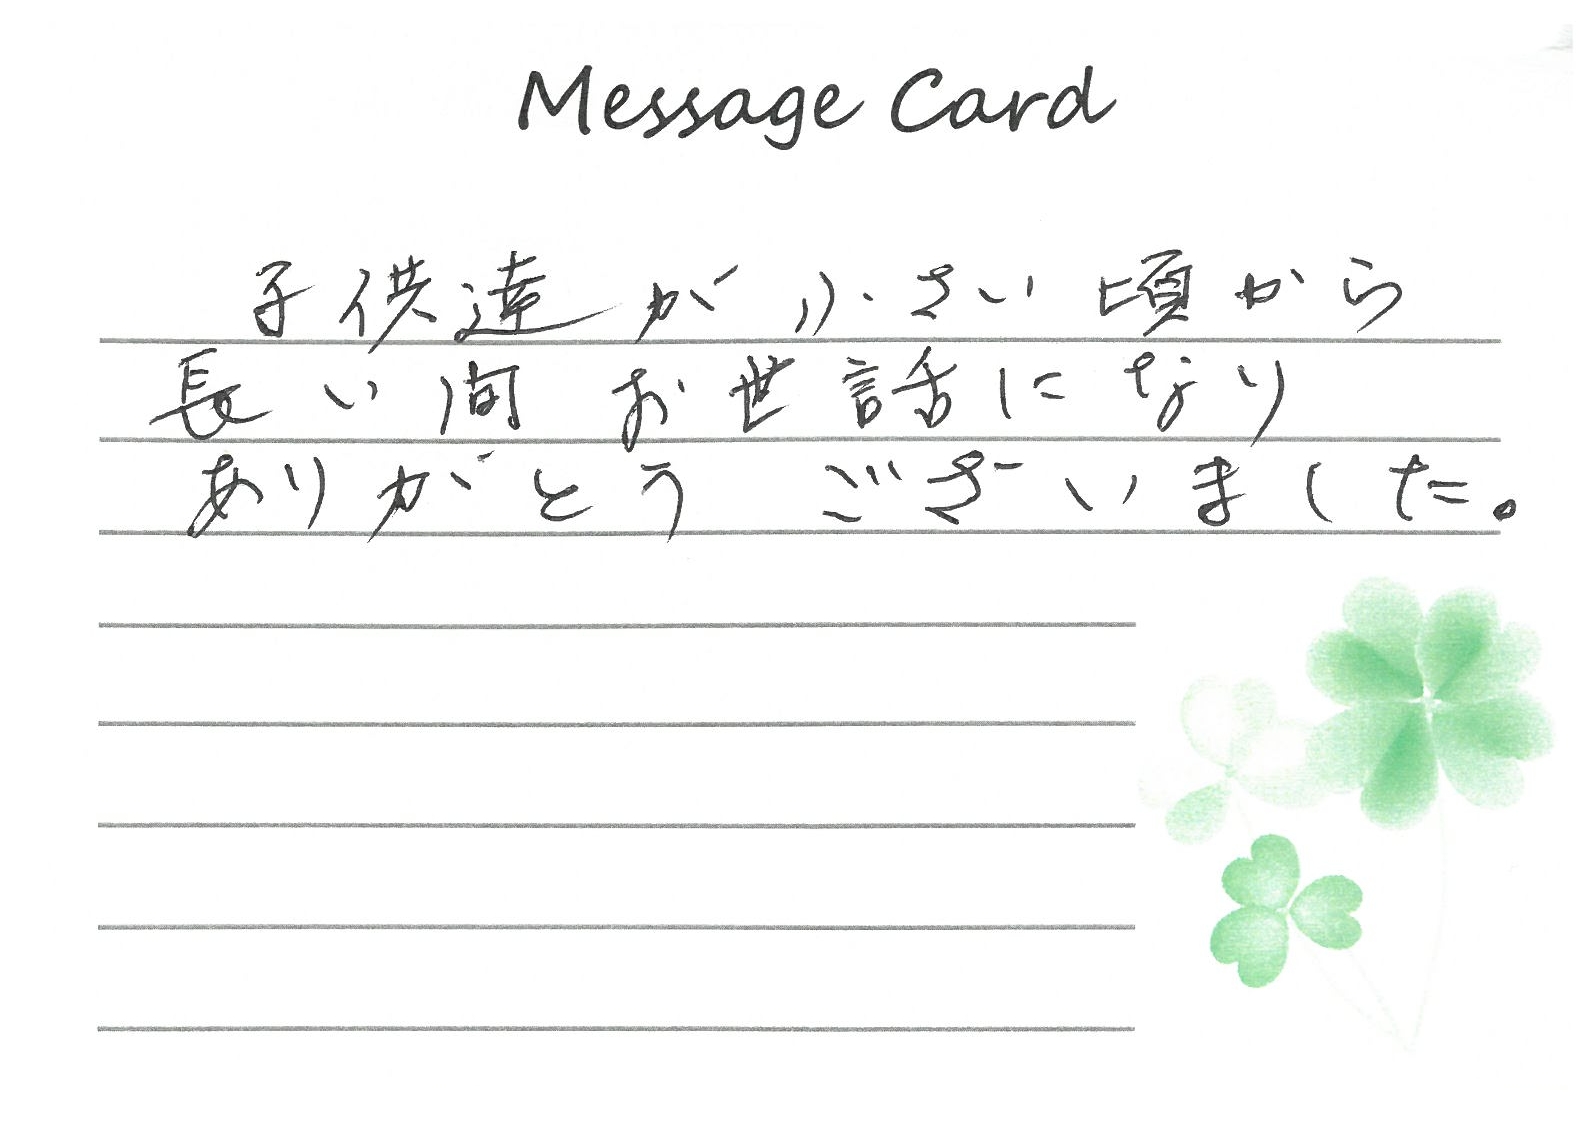 Message Card
子供達が小さい頃から
長い間お世話になり
ありがとうございました。